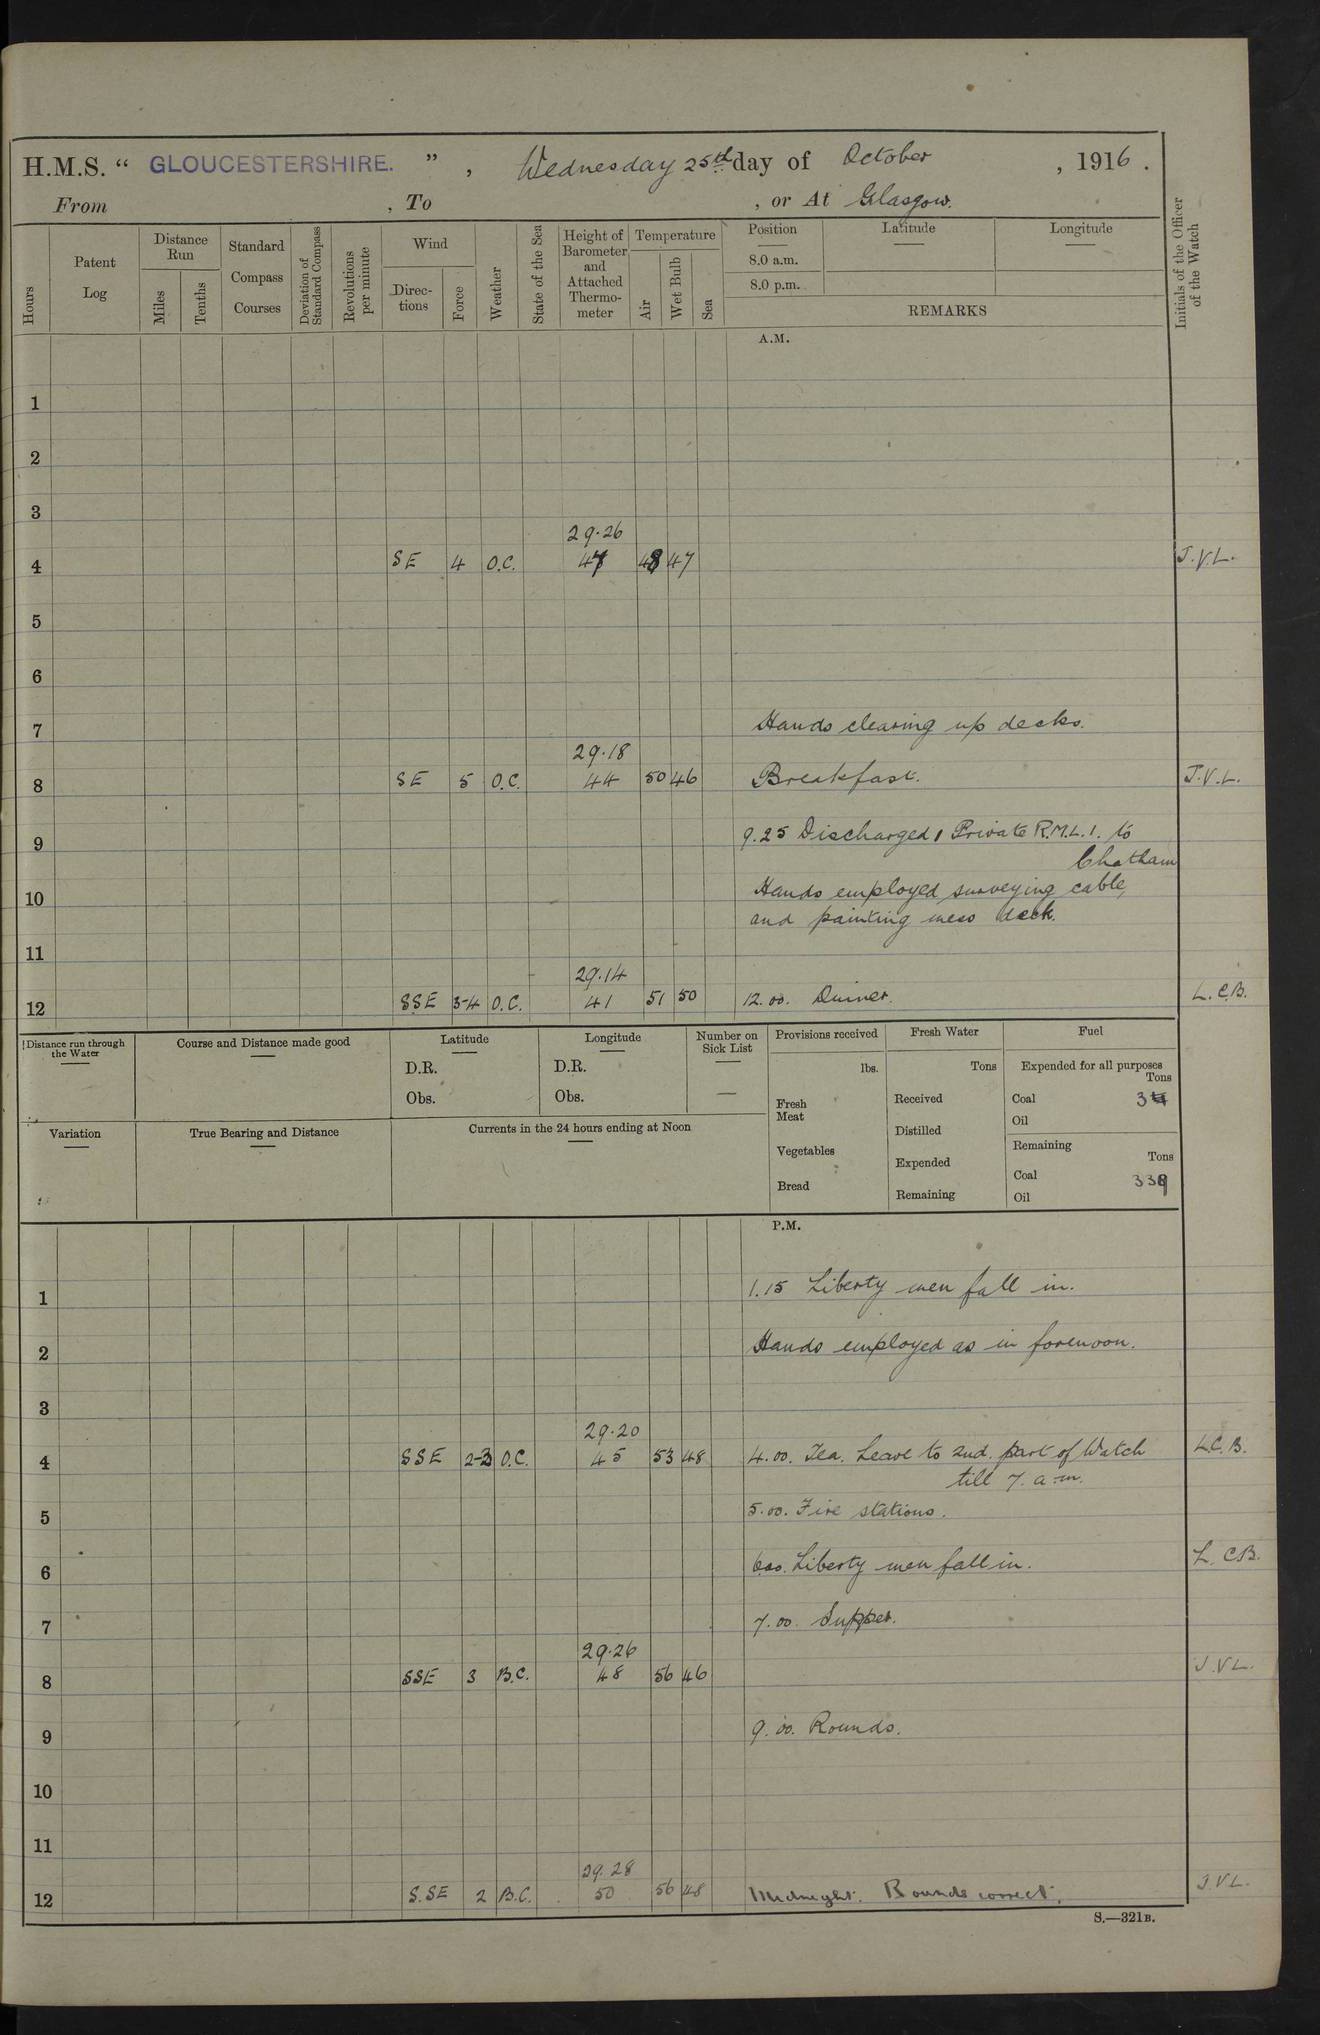 H.M.S. “ GLOUCESTERSHIRE. ” , Wednesday 25th day of October , 1916 .
From , To , or At Glasgow.
Hours
Patent Log
Distance Run
Miles
Tenths
Standard Compass Courses
Deviation of Standard Compass
Revolutions per minute
Wind
Direc-tions
Force
Weather
State of the Sea
Height of Barometer and Attached Thermo-meter
Temperature
Air
Wet Bulb
Sea
Position Latitude Longitude
8.0 a.m.
8.0 p.m.
REMARKS
Initials of the Officer of the Watch
A.M.
1
2
3
29.26
4 SE 4 O.C. 47 48 47 J.V.L.
5
6
7 Hands clearing up decks.
29.18
8 SE 5 O.C. 44 50 46 Breakfast. J.V.L.
9 9.25 Discharged 1 Private R.M.L.I. to
Chatham
10 Hands employed surveying cable,
and painting mess deck.
11
29.14
12 SSE 3-4 O.C. 41 51 50 12.00. Dinner. L.C.B.
Distance run through the Water
Course and Distance made good
Latitude
D.R.
Obs.
Longitude
D.R.
Obs.
Number on Sick List
—
Provisions received
lbs.
Fresh Meat
Vegetables
Bread
Fresh Water
Tons
Received
Distilled
Expended
Remaining
Fuel
Expended for all purposes
Tons
Coal
Oil
Remaining
Tons
Coal 339
Oil
Variation
True Bearing and Distance
Currents in the 24 hours ending at Noon
P.M.
1 1.15 Liberty men fall in.
2 Hands employed as in forenoon.
3
29.20
4 SSE 2-3 O.C. 45 53 48 4.00. Tea. Leave to 2nd. part of Watch L.C.B.
till 7. a.m.
5 5.00. Fire stations.
6 6.00. Liberty men fall in. L.C.B.
7 7.00 Supper.
29.26
8 SSE 3 B.C. 48 56 46 J.V.L.
9 9.00. Rounds.
10
11
29.28
12 S.SE 2 B.C. 50 56 48 Midnight. Rounds correct. J.V.L.
S.—321B.